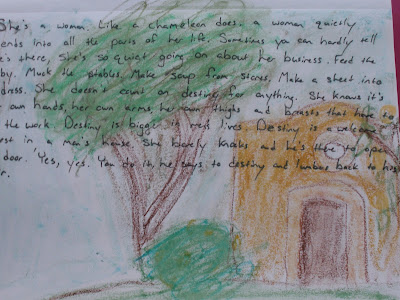 She's a woman. Like a chameleon does, a woman quietly
ends into all the parts of her life. Sometimes you can hardly tell
e's there, she's so quiet going on about her business. Feed the
by. Muck the stables. Make soup from stones. Make a sheet into
dress. She doesn't count on destiny for anything. She knows it's
r own hands, her own arms, her own thighs and breasts that have to
the work. Destiny is bigger in men's lives. Destiny is a welcome
est in a man's house. She barely knocks and he's there to open
door. Yes, yes. You do it, he says to destiny and lumbers back to his